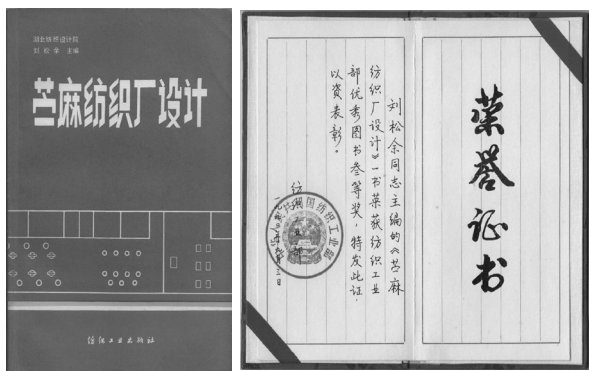 湖北纺织设计院
刘松余 主编
苎麻纺织厂设计
纺织工业出版社
荣誉证书
刘松余同志主编的《苎麻
纺织厂设计》一书荣获纺织工业
部优秀图书叁等奖，特发此证，
以资表彰。